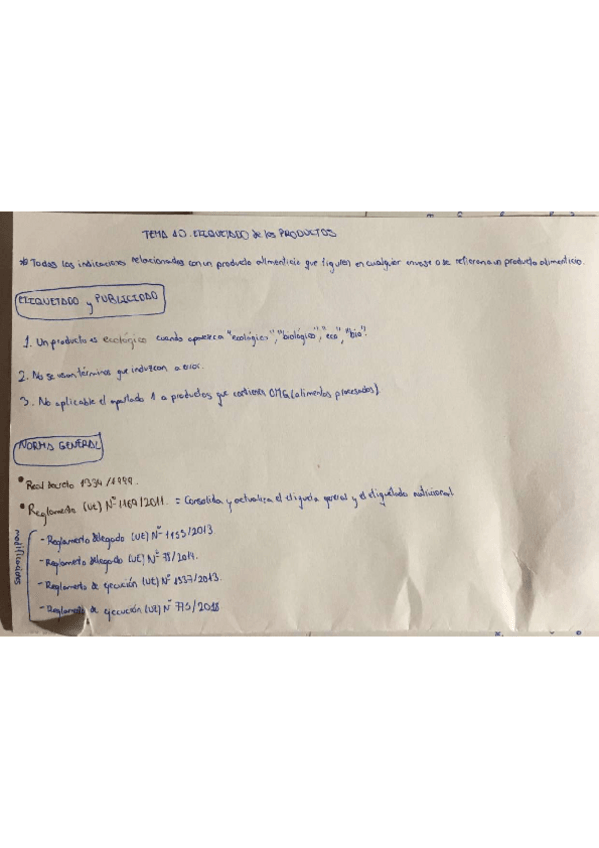 TEMA 10. ETIQUETADO de los PRODUCTOS
* Todas las indicaciones relacionadas con un producto alimenticio que figuren en cualquier envase o se refieran a un producto alimenticio.
ETIQUETADO y PUBLICIDAD
1. Un producto es ecológico cuando aparezca "ecológico", "biológico", "eco", "bio".
2. No se usan términos que induzcan a error.
3. No aplicable el apartado 1 a productos que contienen OMG (alimentos procesados)
NORMA GENERAL
• Real decreto 1334/1999.
• Reglamento (UE) Nº 1169/2011. = Consolida y actualiza el etiqueta general y el etiquetado nutricional
modificaciones
- Reglamento delegado (UE) Nº 1155/2013.
- Reglamento delegado (UE) Nº 78/2014.
- Reglamento de ejecución (UE) Nº 1337/2013.
- Reglamento de ejecución (UE) Nº 775/2018